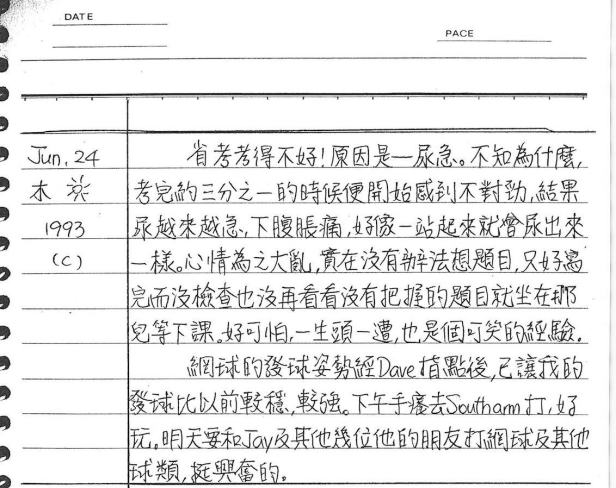 DATE
PACE
Jun, 24
木 炎
1993
(C)
省考考得不好!原因是—尿急。不知為什麼,
考完約三分之一的時候便開始感到不對勁,結果
尿越來越急、下腹脹痛,好像一站起來就會尿出來
一樣。心情為之大亂,實在沒有辦法想題目,只好寫
完而沒檢查也沒再看看沒有把握的題目就坐在那
兒等下課。好可怕,一生頭一遭,也是個可笑的經驗.
網球的發球姿勢經Dave指點後,已讓我的
發球比以前較穩,較強。下午手癢去Southarm打,好
玩。明天要和Jay及其他幾位他的朋友打網球及其他
球類,挺興奮的。